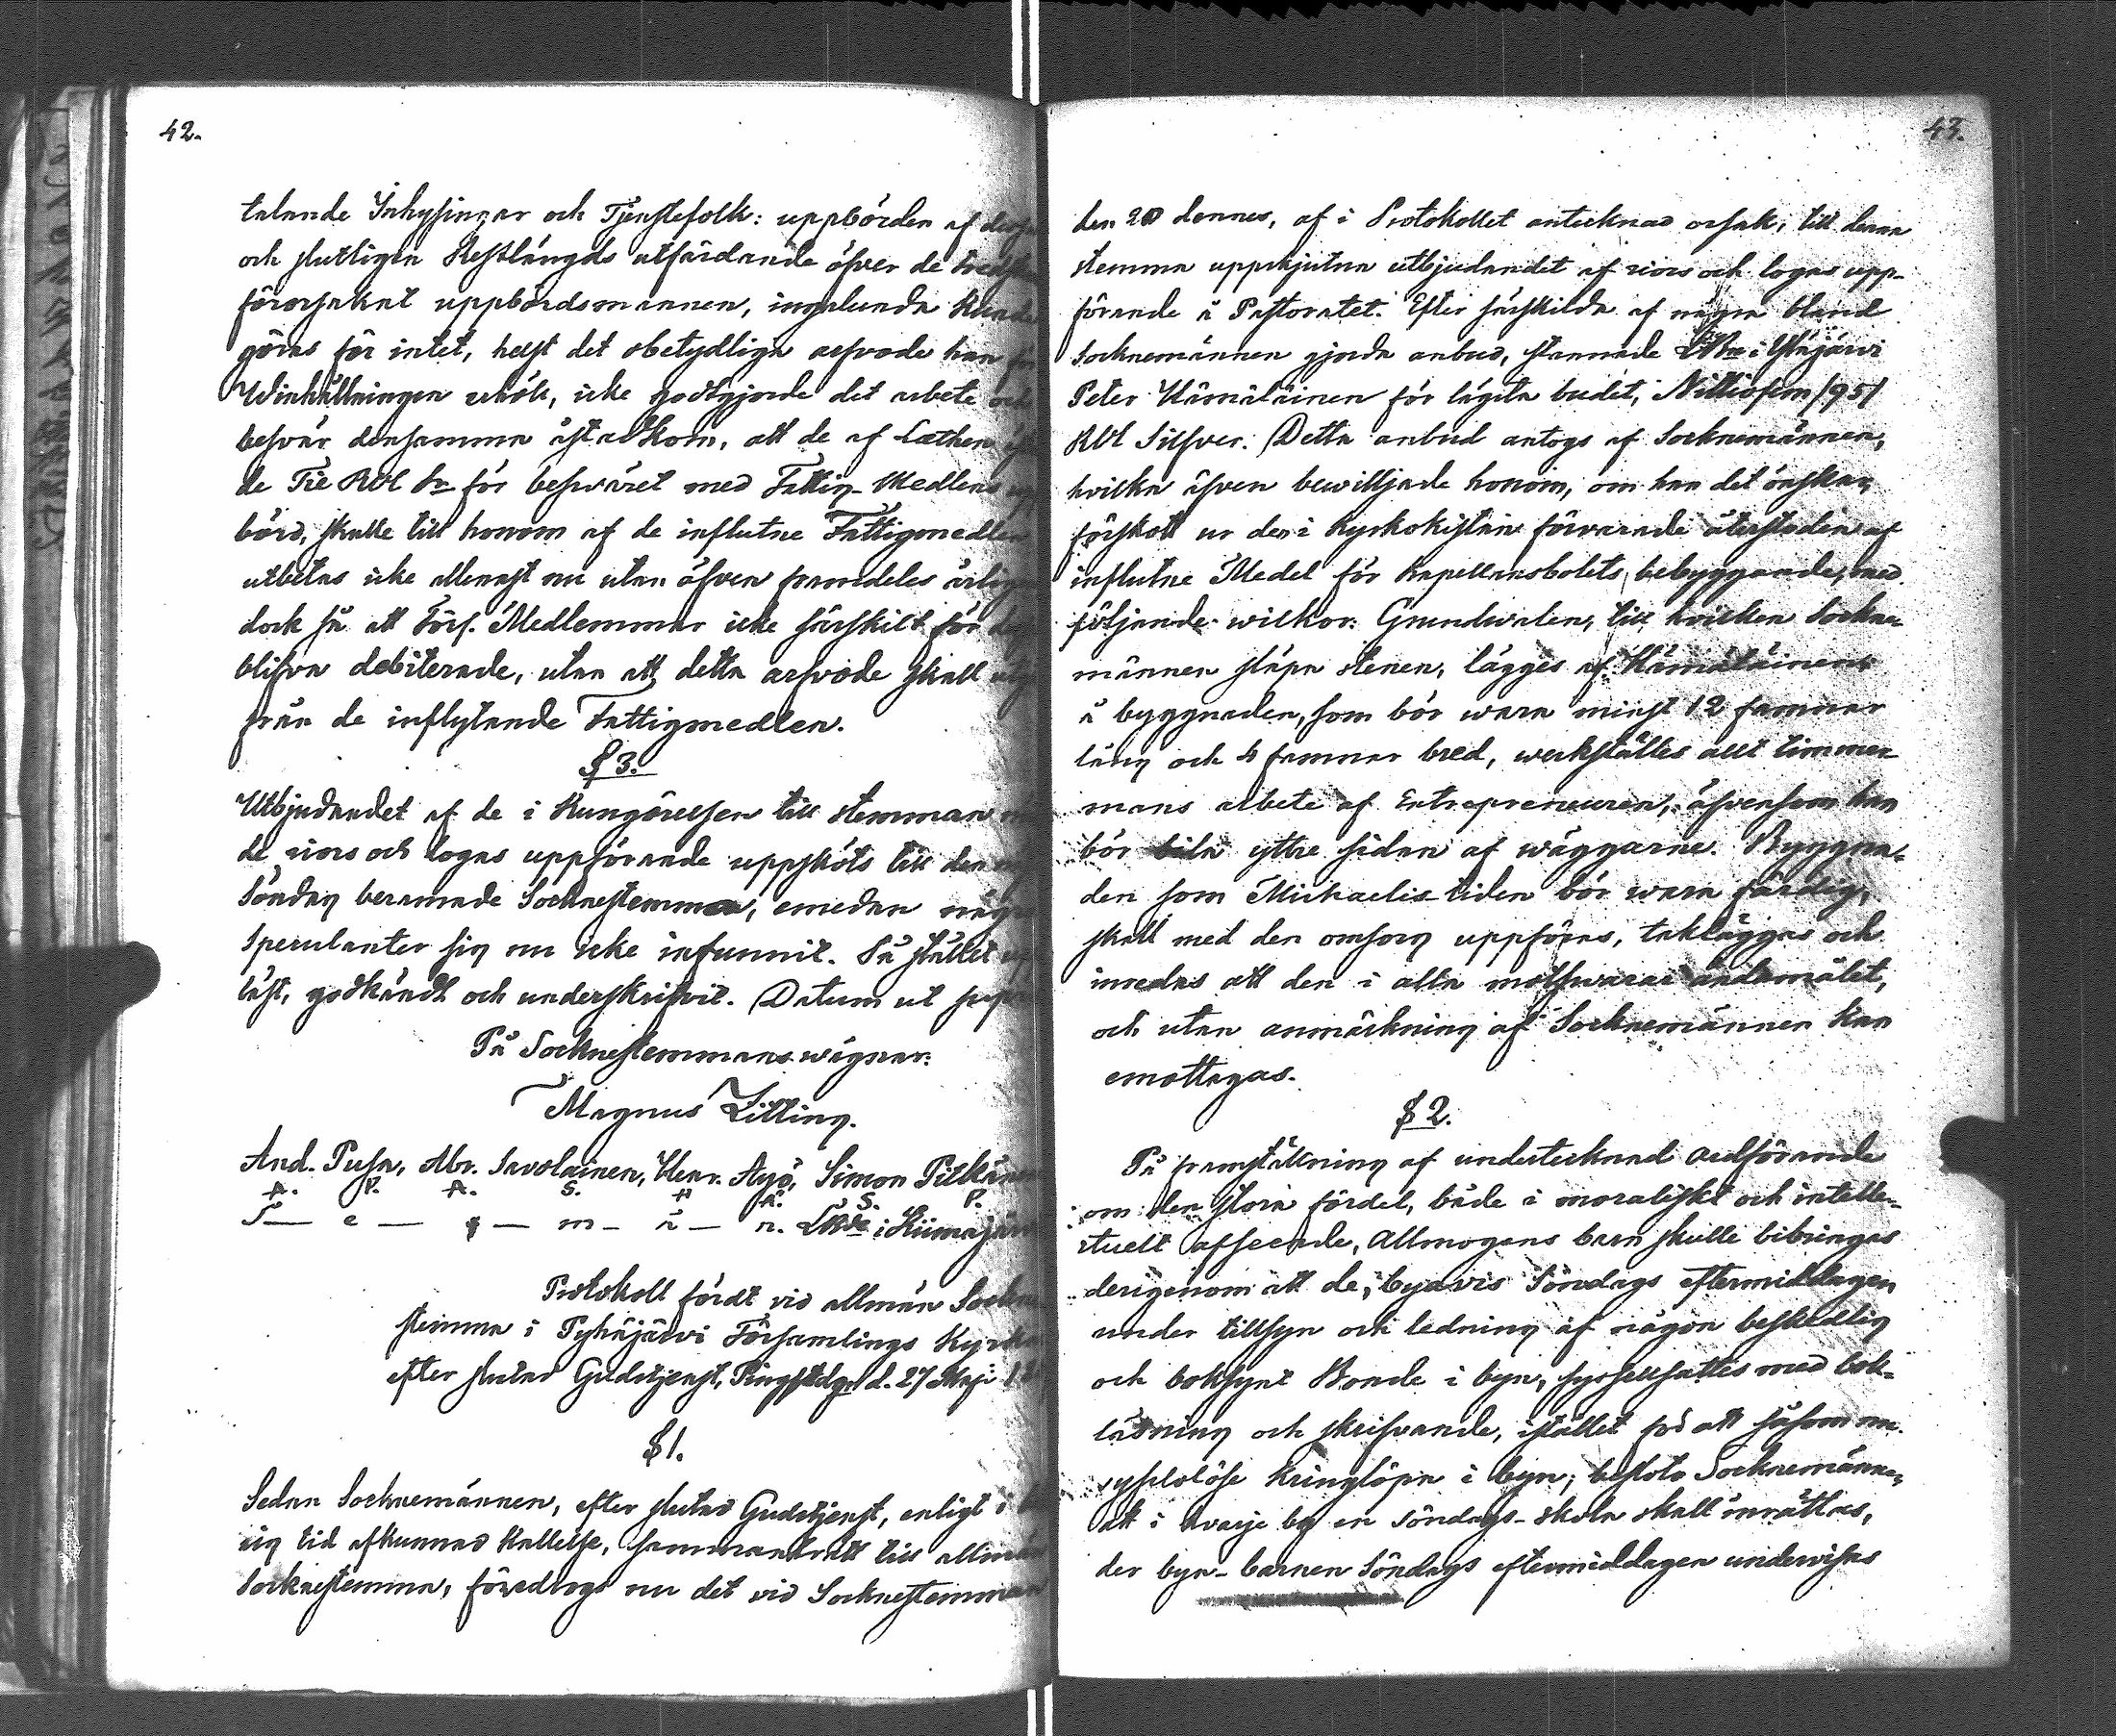 42.
talande Inhysingar och Tjenstefolk: uppbörden af
och slutligen Restlängds utfärdande öfver de
förorsakat uppbördsmannen, ingalunda
göras för intet, helst det obetydliga arfvode han för
Winhållningen åtnöt, icke godtgjorde det arbete och
besvär densamma åstadkom, att de af
de Tie Rbl Sr för besväret med Fattig-Medlens
börd, skulle till honom af de influtne Fattigmedlen
utbetas icke allenast nu utan öfven framdeles
dock så att Förs. Medlemmar icke särskilt för
blifva debiterade, utan att detta arfvode skall
från de inflytande Fattigmedlen.
§ 3.
Utbjudandet af de i Kungörelsen till stemman
de riors och logas uppförande uppsköts till den
Söndag beramade Socknestemma, emedan några
Spekulanter sig nu icke infunnit. Så slutet
läst, godkändt och underskrifvit. Datum ut
På Socknestemmans wägnar:
Magnus Litting.
And. Pusa, Abr. Savolainen, Henr. Äyö, Simon
A. P. A. S. H Ä. S. P.
S— e — x — m — ä — n. i
Protokoll fördt vid allmän
stemma i Pyhäjärvi Församlings
efter slutad Gudstjenst, Pingstdgn d. 27 Maji
§ 1.
Sedan Socknemännen, efter slutad Gudstjenst, enligt i
tid afkunnad kallelse, sammanträdt till
Socknestemma, föredrogs nu det vid Socknestemman
43.
den 20 dennes, af i Protokollet antecknad orsak, till denna
stemma uppskjutna utbjudandet af riors och logas upp-
förande å Pastoratet. Efter särskilda af några bland
Socknemännen gjorda anbud, stannade i Yläjärvi
Peter Hämäläinen för lägsta budet, Nittiofem /95/
Rbl Silfver. Detta anbud antogs af Socknemännen,
hvilka äfven bewilljade honom, om han det önskar,
förskott ur den i Kyrkokistan förvarade återstoden af
influtne Medel för Kapellansbolets bebyggande, med
följande wilkor: Grundvalen, till hvilken Sockne-
männen släpa stenen, lägges af Hämäläinen:
å byggnaden, som bör wara minst 12 famnar
lång och 4 famnar bred, werkställes allt timmer-
mans arbete af Entrepreneuren, äfvensom han
bör bila yttre sidan af wäggarne. Byggna-
den som Michaelis-tiden bör wara färdig,
skall med den omsorg uppföras, takläggas och
inredas att den i alla motswarar ändamålet,
och utan anmärkning af Socknemännen kan
emottagas.
§ 2.
På framställning af undertecknad Ordförande
om den stora fördel, både i moraliskt och intelle-
ctuelt afseende, Allmogens barn skulle bibringas
derigenom att de, byavis Söndags eftermiddagen
under tillsyn och ledning af någon beskedlig
och boksynt Bonde i byn, sysselsattes med bok-
läsning och skrifvande, istället för att såsom nu
sysslolöse kringlöpa i byn; besloto Socknemännen
att i hvarje by en Söndags-skola skall inrättas,
der bya-barnen Söndags eftermiddagen underwisas